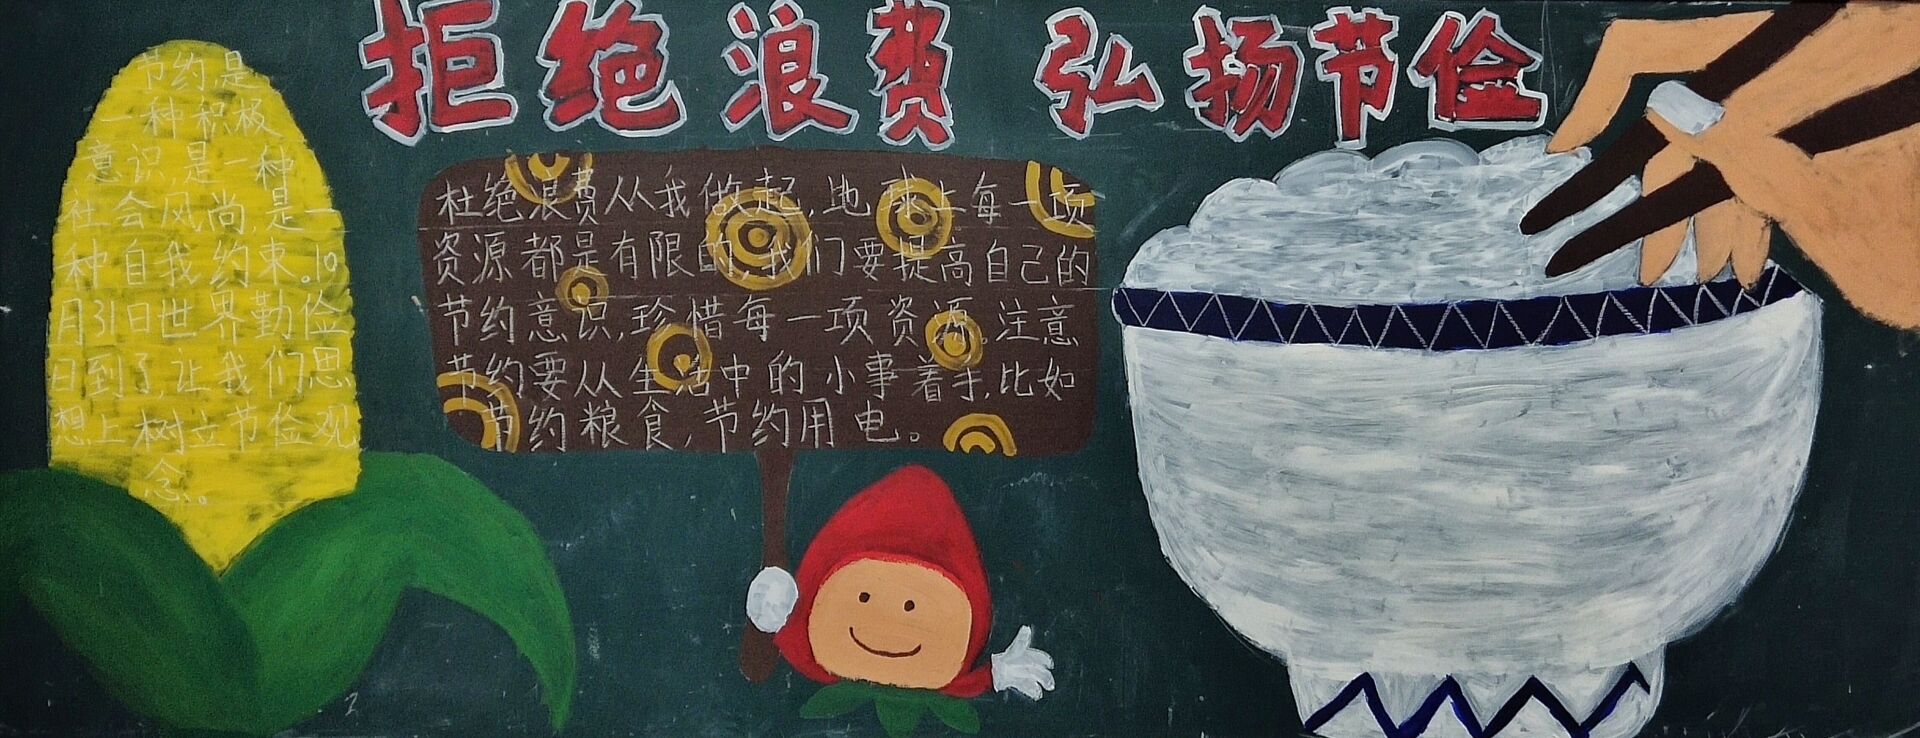 拒绝浪费 弘扬节俭
节约是
一种积极
意识,是一种
社会风尚,是一
种自我约束。10
月31日世界勤俭
日到了,让我们思
想上树立节俭观
念。
杜绝浪费从我做起,地球上每一项
资源都是有限的,我们要提高自己的
节约意识,珍惜每一项资源。注意
节约要从生活中的小事着手,比如
节约粮食,节约用电。